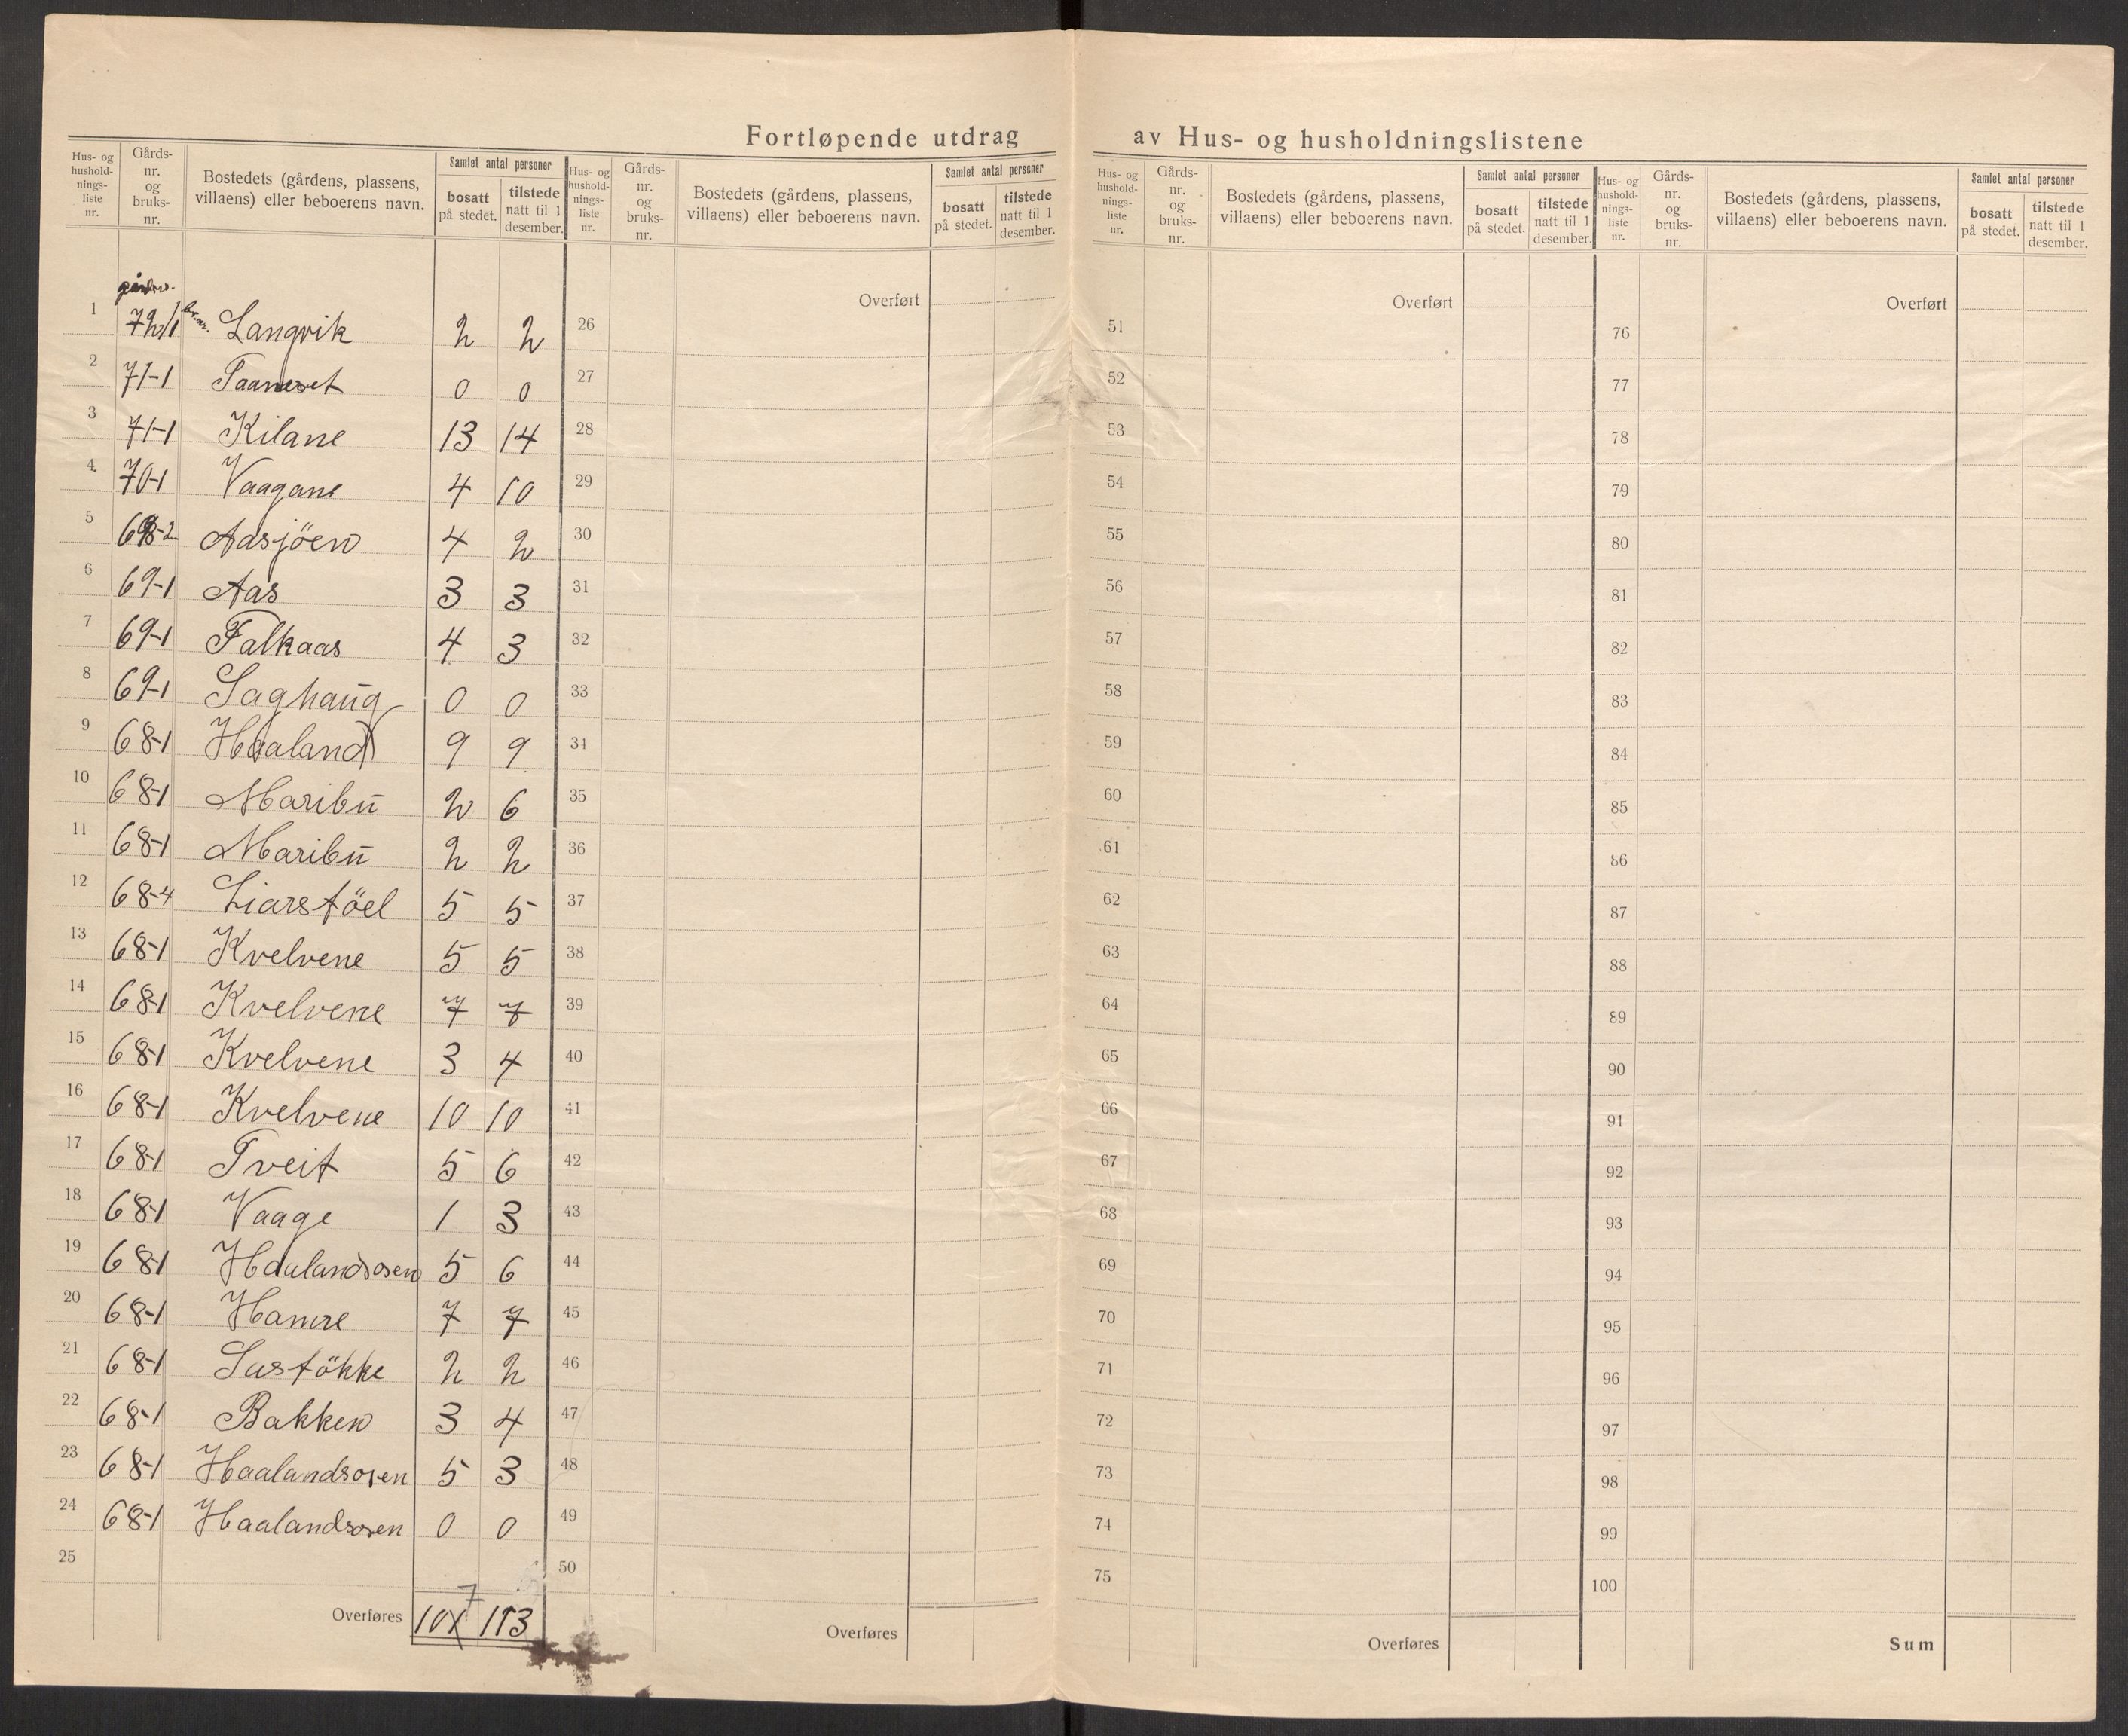 Fortløpende utdrag av Hus- og husholdningslistene
Hus- og hushold-nings-liste nr. Gårds-nr. og bruks-nr. Bostedets (gårdens, plassens, villaens) eller beboerens navn. Samlet antal personer bosatt på stedet. tilstede natt til 1 desember.
Hus- og hushold-nings-liste nr. Gårds-nr. og bruks-nr. Bostedets (gårdens, plassens, villaens) eller beboerens navn. Samlet antal personer bosatt på stedet. tilstede natt til 1 desember.
Hus- og hushold-nings-liste nr. Gårds-nr. og bruks-nr. Bostedets (gårdens, plassens, villaens) eller beboerens navn. Samlet antal personer bosatt på stedet. tilstede natt til 1 desember.
Hus- og hushold-nings-liste nr. Gårds-nr. og bruks-nr. Bostedets (gårdens, plassens, villaens) eller beboerens navn. Samlet antal personer bosatt på stedet. tilstede natt til 1 desember.
gårdsnr. br.nr.
1 72/1 Langvik 2 2
2 71-1 3
71-1 Kilane 13 14
4 70-1 Vaagane 4 10
5 Aasjöen 4 2
6 69-1 Aas 3 3
7 69-1 Falkaas 4 3
8 69-1 Saghaug 0 0
9 68-1 Haaland 9 9
10 68-1 Maribu 2 6
11 68-1 Maribu 2 2
12 68-4 Liarstöel 5 5
13 68-1 Kvelvene 5 5
14 68-1 Kvelvene 7 7
15 68-1 Kvelvene 3 4
16 68-1 Kvelvene 10 10
17 68-1 Tveit 5 6
18 68-1 Vaage 1 3
19 68-1 Haalandsosen 5 6
20 68-1 Hamre 7 7
21 68-1 Sustökke 2 2
22 68-1 Bakken 3 4
23 68-1 Haalandsosen 5 3
24 68-1 Haalandsosen 0 0
25
Overføres 101 7 113
Overført
26
27
28
29
30
31
32
33
34
35
36
37
38
39
40
41
42
43
44
45
46
47
48
49
50
Overføres
Overført
51
52
53
54
55
56
57
58
59
60
61
62
63
64
65
66
67
68
69
70
71
72
73
74
75
Overføres
Overført
76
77
78
79
80
81
82
83
84
85
86
87
88
89
90
91
92
93
94
95
96
97
98
99
100
Sum